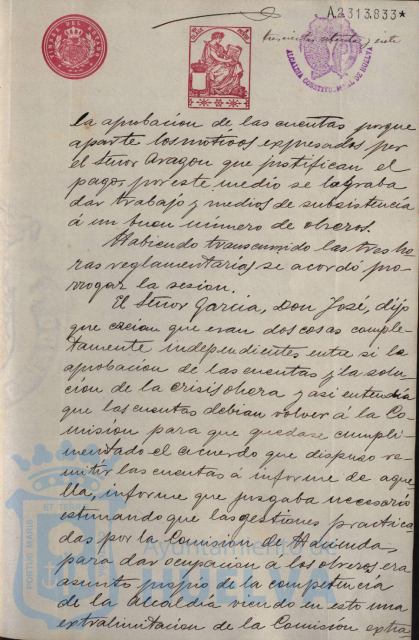 A2313.833*
TIMBRE DEL ESTADO
ALCALDIA CONSTITUCIONAL DE HUELVA
trescientos ochenta y siete
la aprobacion de las cuentas porque
aparte los motivos expresados por
el Señor Aragon que justifican el
pago, por este medio se lograba
dar trabajo y medios de subsistencia
á un buen número de obreros.
Habiendo transcurrido las tres ho
ras reglamentarias se acordó pro
rrogar la sesion.
El Señor Garcia, Don José, dijo
que creian que eran dos cosas comple
tamente independientes entre si la
aprobacion de las cuentas y la solu
cion de la crisis obrera y asi entendia
que las cuentas debian volver á la Co
mision para que quedase cumpli
mentado el acuerdo que dispuso re
mitir las cuentas á informe de aque
lla, informe que juzgaba necesario
estimando que las gestiones practica
das por la Comision de Hacienda,
para dar ocupacion a los obreros era
asunto propio de la competencia
de la Alcaldía viendo en esto una
extralimitacion de la Comisión extra
PORTUS MARIS ET TERRAE
Ayuntamiento de
HUELVA